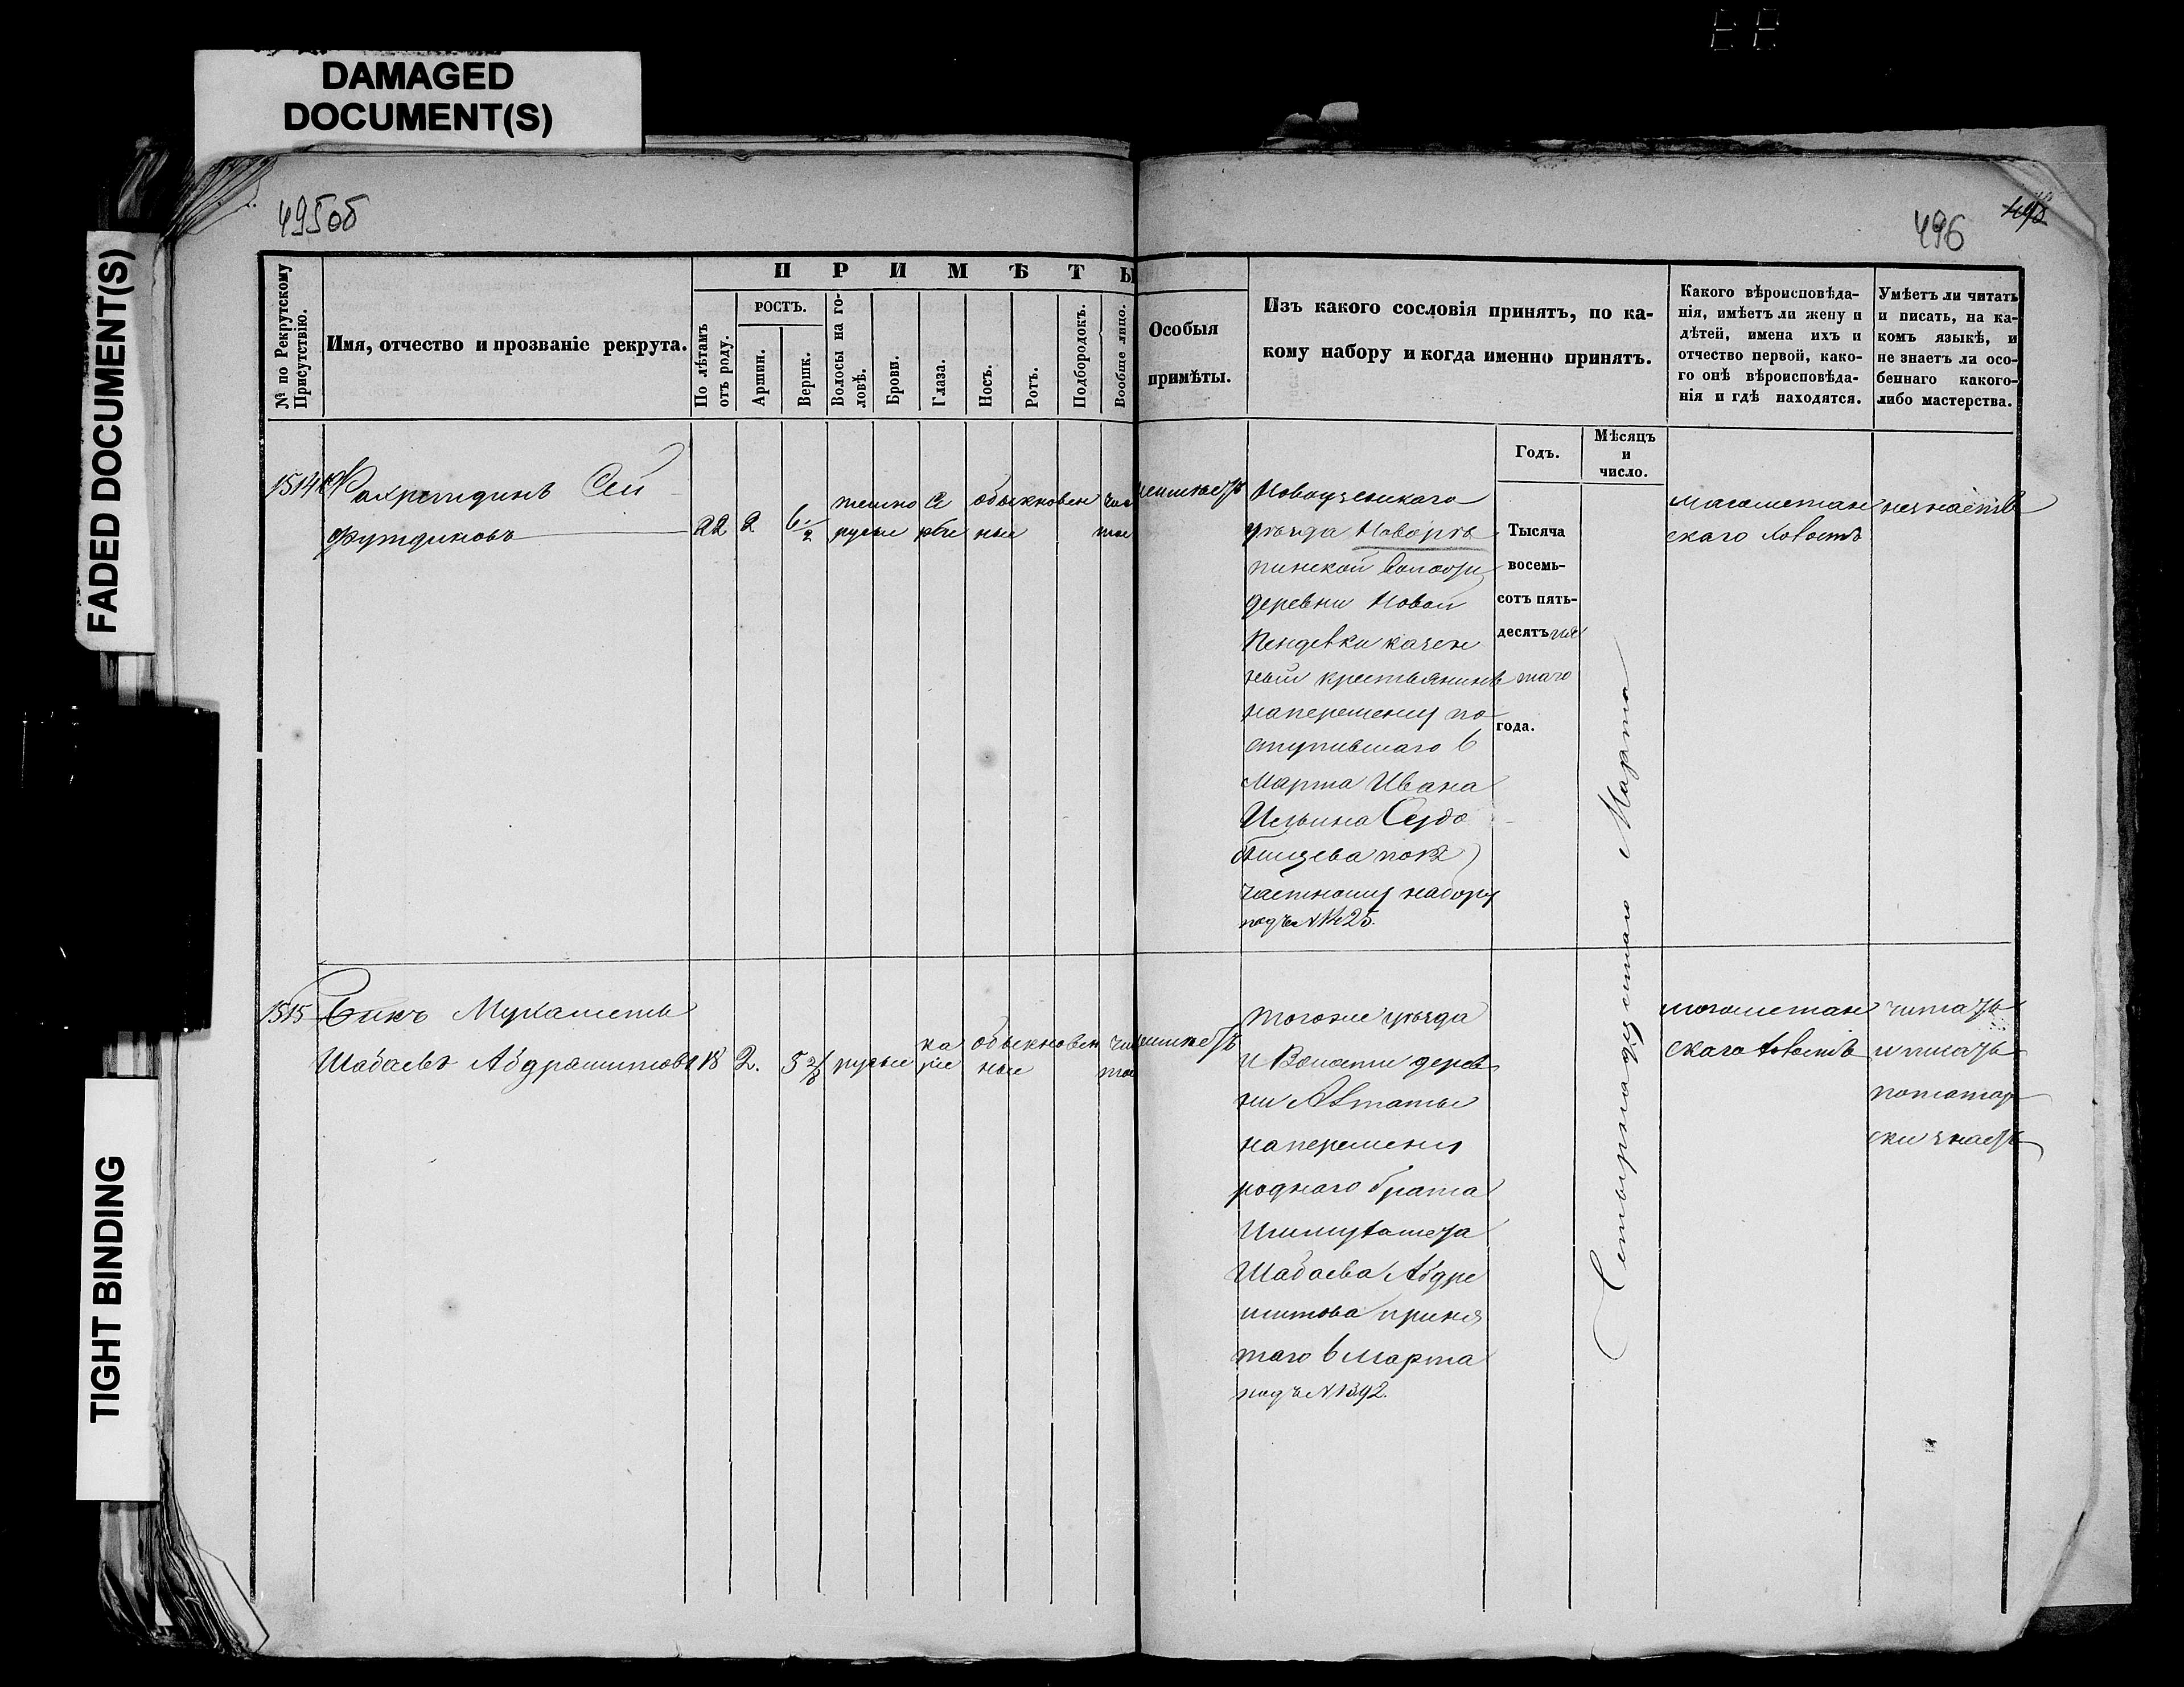 DAMAGED
DOCUMENT(S)
FADED DOCUMENT(S)
TIGHT BINDING
495об
496
№ по Рекрутскому
Присутствію.
Имя, отчество и прозваніе рекрута.
ПРИМѢТЫ
По лѣтамъ
отъ роду.
РОСТЪ.
Аршин.
Вершк.
Волосы на го-
ловѣ.
Брови.
Глаза.
Носъ.
Ротъ.
Подбородокъ.
Вообще лицо.
Особыя
примѣты.
Изъ какого сословія принятъ, по ка-
кому набору и когда именно принятъ.
Годъ.
Мѣсяцъ
и
число.
Какого вѣроисповѣда-
нія, имѣетъ ли жену и
дѣтей, имена ихъ и
отчество первой, како-
го онѣ вѣроисповѣда-
нія и гдѣ находятся.
Умѣетъ ли читать
и писать, на ка-
комъ языкѣ, и
не знаетъ ли осо-
беннаго какого-
либо мастерства.
1514
Фахретдинъ Сей
футдиновъ
22 2 6 1/2
темно
русые
сѣ
рые
обыкновен
ные
чис
тое
неимѣетъ
Новоузенскаго
уѣзда
пинской волости
деревни Новой
казен
ный крестьянинъ
наперемену по
ступившаго 6
Марта Ивана
Ильина Сердо
частному набору
подъ № 1425.
Тысяча
восемь-
сотъ пять-
десятъ пя
таго
года.
Четырнадцатаго Марта
магометан
скаго холостъ
незнаетъ
1515
Бикъ Мухаметъ
Шабаевъ Абдрашитовъ
18 2. 5 2/8 русые
ка
ріе
обыкновен
ные
чис
тое
неимѣетъ
Тогоже уѣзда
и Волости дерев
ни Алтаты
наперемену
роднаго брата
Шабаева Абдре
шитова приня
таго 6 Марта
подъ № 1392.
магометан
скаго холостъ
читать
и писать
потатар
ски знаетъ